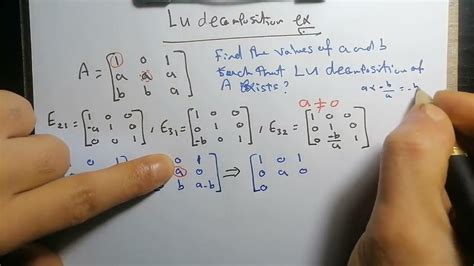 Lu decomposition ex
Find the values of a and b
such that LU decomposition of
A Exists?
A = [1 0 1
a a a
b b a]
a ≠ 0
a x -b/a = -b
E21 = [1 0 0
-a 1 0
0 0 1], E31 = [1 0 0
0 1 0
-b 0 1], E32 = [1 0 0
0 1 0
0 -b/a 1]
0 1
a 0
b a-b] ⇒ [1 0 1
0 a 0
0